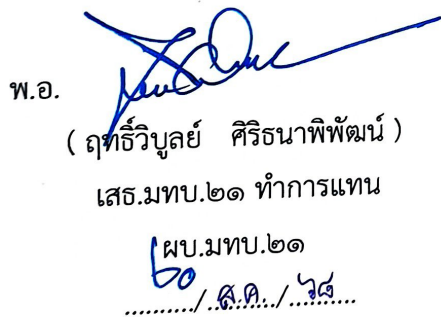 พ.อ.
( ฤทธิ์วิบูลย์ ศิริธนาพิพัฒน์ )
เสธ.มทบ.๒๑ ทำการแทน
ผบ.มทบ.๒๑
๒๐/ ส.ค./ ๖๘